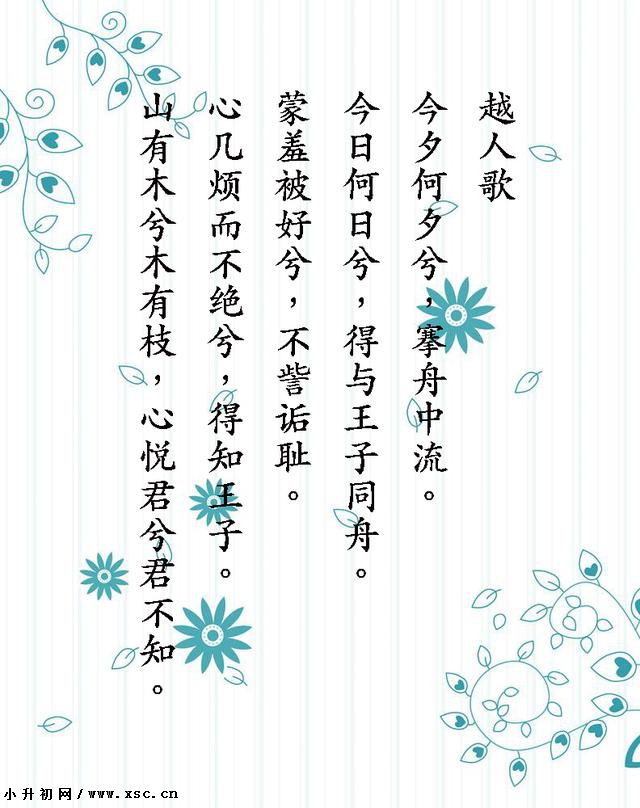 越人歌
今夕何夕兮，搴舟中流。
今日何日兮，得与王子同舟。
蒙羞被好兮，不訾诟耻。
心几烦而不绝兮，得知王子。
山有木兮木有枝，心悦君兮君不知。
小升初网/www.xsc.cn